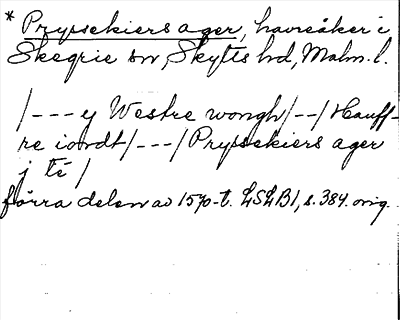 * Pryssekiers ager, havreåker i
Skegrie sn, Skytts hd, Malm. l.
/---y Westre wongh/--/Hauff-
re iordt/---/Pryssekiers ager
j té /
förra delen av 1570-t. LSLB1, s. 384. orig.